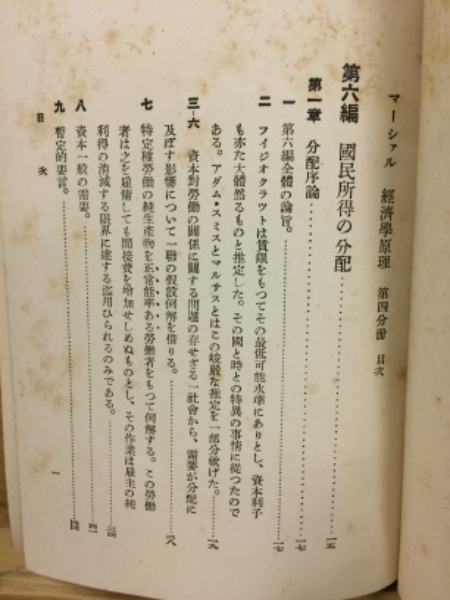 マーシャル 經濟學原理 第四分册 目次
第六編 國民所得の分配……一五
第一章 分配序論……一七
一 第六編全體の論旨。……一七
二 フイジオクラツトは賃銀をもつてその最低可能水準にありとし、資本利子
も亦た大體然るものと推定した。その國と時との特異の事情に從つたので
ある。アダム・スミスとマルサスとはこの峻嚴な推定を一部分敏げた。……一九
三-六 資本對勞働の關係に關する問題の存せざる一社會から、需要が分配に
及ぼす影響について一聯の假設例解を借りる。……二八
七 特定種勞働の純生產物を正常能率ある勞働者をもつて例解する。この勞働
者は之を雇傭しても間接費を增加せしめぬものとし、その作業は雇主の純
利得の消滅する限界に達する迄用ひられるのみである。……三四
八 資本一般の需要。……四一
九 暫定的要言。……四四
目次
一